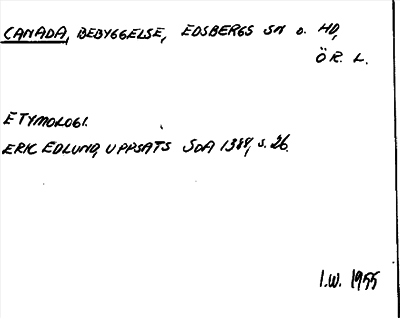 CANADA, BEBYGGELSE, EDSBERGS SN O. HD,
ÖR. L.
ETYMOLOGI.
ERIC EDLUND, UPPSATS SOA 1388, s. 26.
I.W. 1955